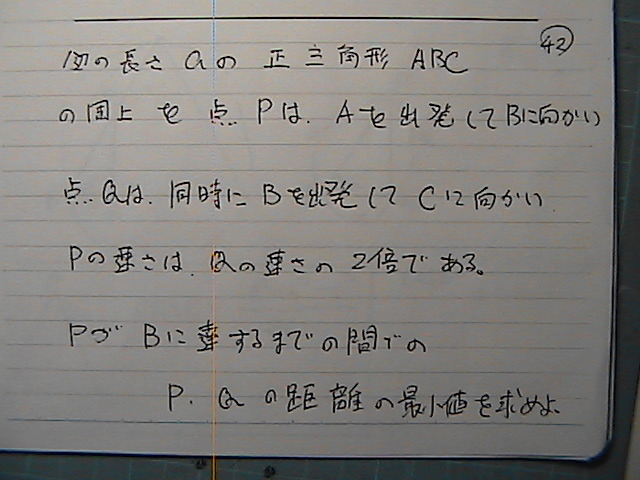 42
辺の長さ aの 正三角形 ABC
の周上 を 点 Pは、Aを出発してBに向かい
点Qは、同時に Bを出発して Cに向かい
Pの速さは、Qの速さの 2倍である。
Pが Bに達するまでの間での
P、Qの距離の最小値を求めよ